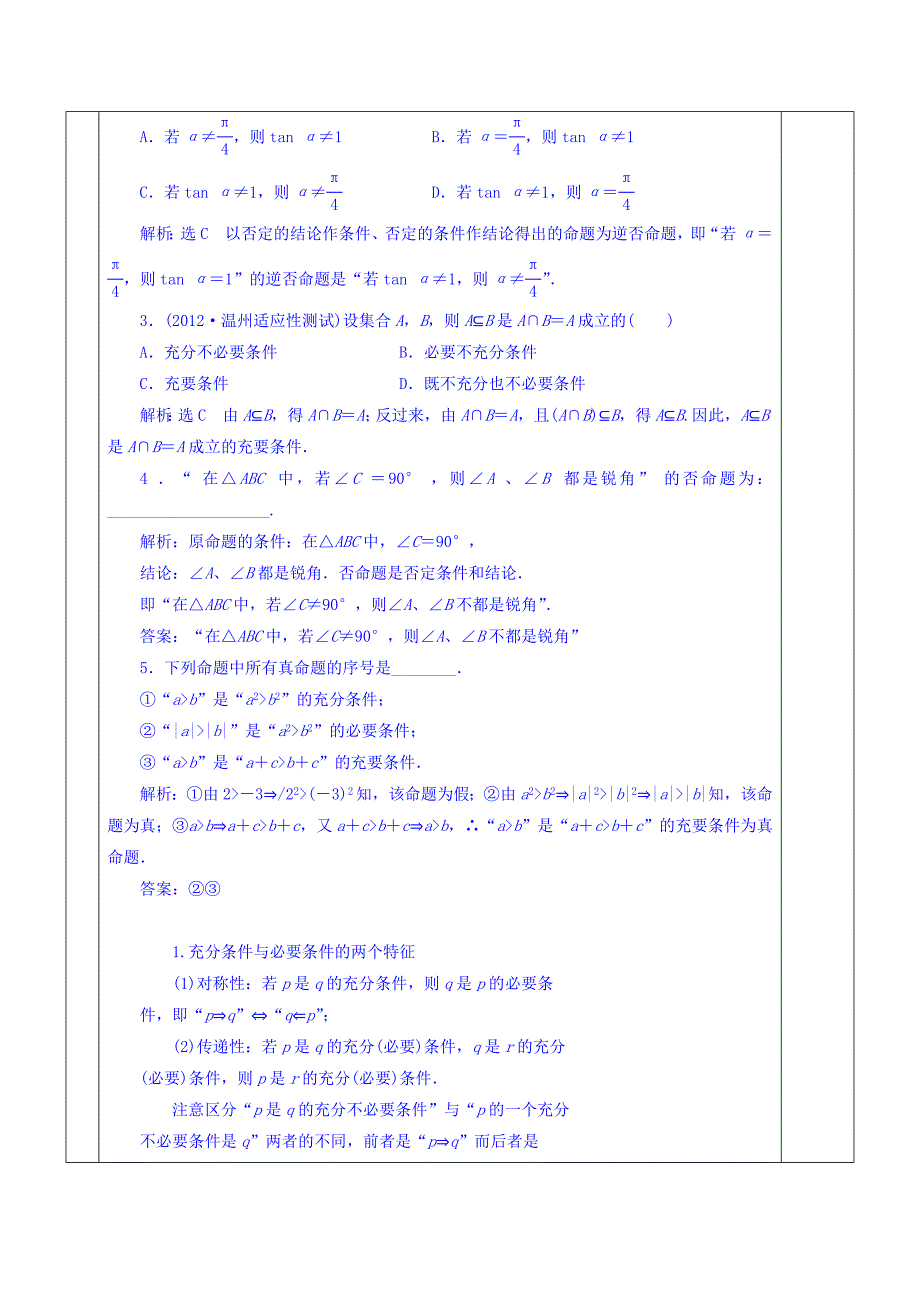 A．若 α≠π/4，则 tan α≠1　　B．若 α＝π/4，则 tan α≠1
C．若 tan α≠1，则 α≠π/4　　D．若 tan α≠1，则 α＝π/4
解析：选 C　以否定的结论作条件、否定的条件作结论得出的命题为逆否命题，即“若 α＝
π/4，则 tan α＝1”的逆否命题是“若 tan α≠1，则 α≠π/4”．
3．(2012·温州适应性测试)设集合 A，B，则 A⊆B 是 A∩B＝A 成立的(　　)
A．充分不必要条件　　B．必要不充分条件
C．充要条件　　D．既不充分也不必要条件
解析：选 C　由 A⊆B，得 A∩B＝A；反过来，由 A∩B＝A，且(A∩B)⊆B，得 A⊆B.因此，A⊆B
是 A∩B＝A 成立的充要条件．
4．“在△ABC 中，若∠C＝90°，则∠A、∠B 都是锐角”的否命题为：
____________________．
解析：原命题的条件：在△ABC 中，∠C＝90°，
结论：∠A、∠B 都是锐角．否命题是否定条件和结论．
即“在△ABC 中，若∠C≠90°，则∠A、∠B 不都是锐角”．
答案：“在△ABC 中，若∠C≠90°，则∠A、∠B 不都是锐角”
5．下列命题中所有真命题的序号是________．
①“a>b”是“a²>b²”的充分条件；
②“|a|>|b|”是“a²>b²”的必要条件；
③“a>b”是“a＋c>b＋c”的充要条件．
解析：①由 2>－3⇒/2²>(－3)²知，该命题为假；②由 a²>b²⇒|a|²>|b|²⇒|a|>|b|知，该命
题为真；③a>b⇒a＋c>b＋c，又 a＋c>b＋c⇒a>b，∴“a>b”是“a＋c>b＋c”的充要条件为真
命题．
答案：②③
1.充分条件与必要条件的两个特征
(1)对称性：若 p 是 q 的充分条件，则 q 是 p 的必要条
件，即“p⇒q”⇔“q⇐p”；
(2)传递性：若 p 是 q 的充分(必要)条件，q 是 r 的充分
(必要)条件，则 p 是 r 的充分(必要)条件．
注意区分“p 是 q 的充分不必要条件”与“p 的一个充分
不必要条件是 q”两者的不同，前者是“p⇒q”而后者是